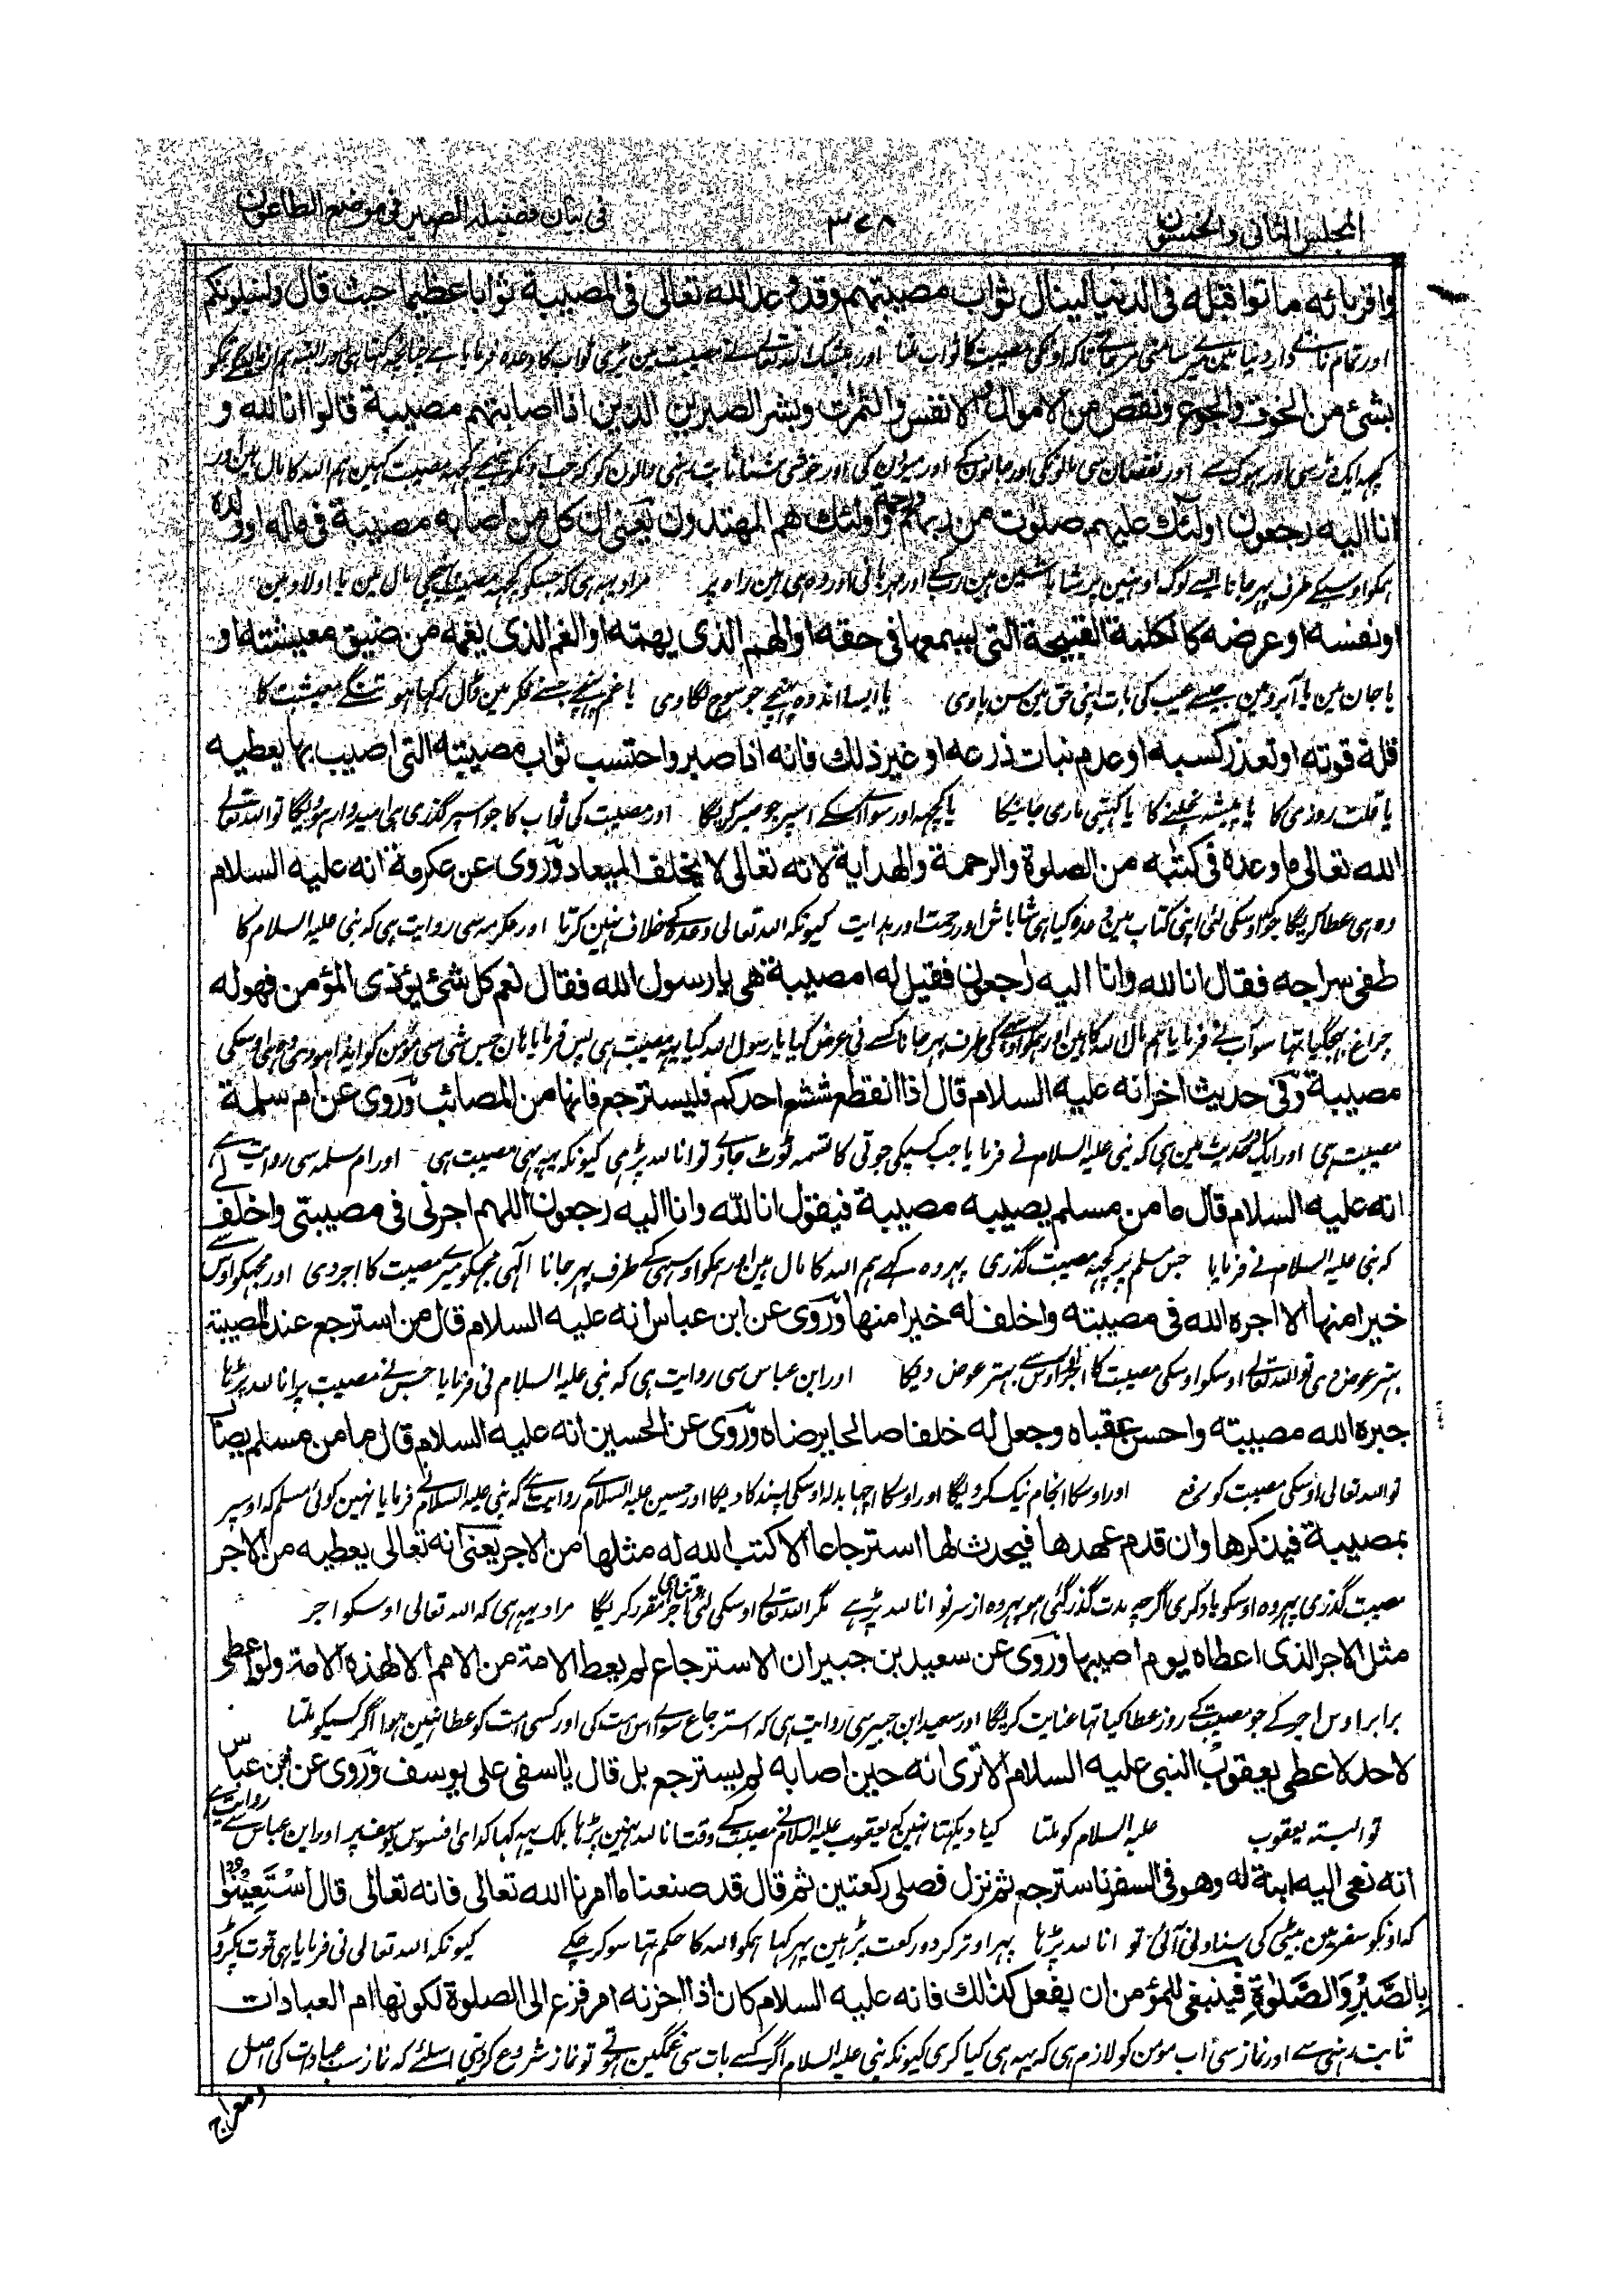 المجلس الثانى والخمسون ٣٧٨ فى بيان فضيلة الصبر فى موضع الطاعون
واقربائه ماتوا قبله فى الدنيا لينال ثواب مصيبتهم وقد وعد الله تعالى فى المصيبة ثوابا عظيما حيث قال ولنبلونكم
بشئ من الخوف والجوع ونقص من الاموال والانفس والثمرات وبشر الصبرين الذين اذا اصابتهم مصيبة قالوا انا لله و
انا اليه رجعون اولئك عليهم صلوت من ربهم ورحمة واولئك هم المهتدون يعنى ان كل من اصابه مصيبة فى ماله او ولده
ہمکو اوسیکے طرف پہر جانا ایسے لوگ اونہین پر شاباشین ہین رب کے اور مہربانی اور وہ ہی ہین راہ پر مراد یہہ ہی کہ جسکو کچہہ مصیبت پہنچی مال مین یا اولاد مین
او نفسه او عرضه كالكلمة القبيحة التى يسمعها فى حقه او الهم الذى يهمه او الغم الذى يغمه من ضيق معيشته او
یا جان مین یا آبرو مین جیسے عیب کی بات اپنی حق مین سن پاوی یا ایسا اندوہ پہنچے جو سوچ لگاوی یا غم پہنچے جسنے فکر مین ڈال رکہا ہو تنگے معیشت کا
قلة قوته او تعذر كسبه او عدم نبات زرعه او غير ذلك فانه اذا صبر واحتسب ثواب مصيبته التى اصيب بها يعطيه
یا قلت روزی کا یا پیشہ نچلنے کا یا کہیتی ماری جانیکا یا کچہہ اور سوا اسکے اسپر جو صبر کریگا اور مصیبت کی ثواب کا جو اسپر گذری ہی امیدوار ہوویگا تو اللہ تعالے
الله تعالى ما وعده فى كتبه من الصلوة والرحمة والهداية لانه تعالى لا يخلف الميعاد وروى عن عكرمة انه عليه السلام
وہ ہی عطا کریگا جو اوسکی لئی اپنی کتاب مین وعدہ کیا ہی شاباش اور رحمت اور ہدایت کیونکہ اللہ تعالی وعدہ کے خلاف نہین کرتا اور عکرمہ سی روایت ہی کہ نبی علیہ السلام کا
طفى سراجه فقال انا لله وانا اليه رجعون فقيل له امصيبة هى يا رسول الله فقال نعم كل شئ يؤذى المؤمن فهو له
چراغ بجہہ گیا تہا سو آپ نے فرمایا ہم مال اللہ کا ہین اور ہمکو اوسی کی طرف پہر جانا کسے نی عرض کیا یا رسول اللہ کیا یہہ مصیبت ہی پس فرمایا ہان جس شی سی مؤمن کو ایذا ہو وہی اوسکی
مصيبة وفى حديث اخر انه عليه السلام قال اذا انقطع شسع احدكم فليسترجع فانها من المصائب وروى عن ام سلمة
مصیبت ہی اور ایک حدیث مین ہی کہ نبی علیہ السلام نے فرمایا جب کسیکی جوتی کا تسمہ ٹوٹ جاوے تو انا للہ پڑہی کیونکہ یہہ بہی مصیبت ہی اور ام سلمہ سی روایت ہے
انه عليه السلام قال ما من مسلم يصيبه مصيبة فيقول انا لله وانا اليه رجعون اللهم اجرنى فى مصيبتى واخلف لى
کہ نبی علیہ السلام نے فرمایا جس مسلم پر کچہہ مصیبت گذری پہر وہ کہے ہم اللہ کا مال ہین اور ہمکو اوسہی کے طرف پہر جانا الٰہی مجہکو میرے مصیبت کا اجر دی اور مجہکو اوس سے
خيرا منها الا اجره الله فى مصيبته واخلف له خيرا منها وروى عن ابن عباس انه عليه السلام قال من استرجع عند المصيبة
بہتر عوض دی تو اللہ تعالے اوسکو اوسکی مصیبت کا اجر اور اوس سے بہتر عوض دیگا اور ابن عباس سی روایت ہی کہ نبی علیہ السلام نی فرمایا جس نے مصیبت پر انا للہ پڑہا
جبره الله مصيبته واحسن عقباه وجعل له خلفا صالحا يرضاه وروى عن الحسين انه عليه السلام قال ما من مسلم يصاب
تو اللہ تعالی اوسکی مصیبت کو اور اوسکا انجام نیک کر دیگا اور اوسکا اچہا بدلہ اوسکی پسند کا دیگا اور حسین علیہ السلام سے روایت ہے کہ نبی علیہ السلام نے فرمایا نہین کوئی مسلم کہ اوسپر
بمصيبة فيذكرها وان قدم عهدها فيحدث لها استرجاعا الا كتب الله له مثلها من الاجر يعنى انه تعالى يعطيه من الاجر
مصیبت گذری پہر وہ اوسکو یاد کری اگرچہ مدت گذر گئی ہو پہر وہ از سر نو انا للہ پڑہے مگر اللہ تعالے اوسکی لئی اجر مقرر کریگا مراد یہہ ہی کہ اللہ تعالی اوسکو اجر
مثل الاجر الذى اعطاه يوم اصيبها وروى عن سعيد بن جبير ان الاسترجاع لم يعط الامة من الامم الا لهذه الامة ولو اعطى
برابر اوس اجر کے جو مصیبت کے روز عطا کیا تہا عنایت کریگا اور سعید ابن جبیر سی روایت ہی کہ استرجاع سوای اس امت کی اور کسی امت کو عطا نہین ہوا اگر کسیکو ملتا
لاحد لاعطى يعقوب النبى عليه السلام الا ترى انه حين اصابه لم يسترجع بل قال ياسفى على يوسف وروى عن ابن عباس
تو البتہ یعقوب علیہ السلام کو ملتا کیا دیکہتا نہین کہ یعقوب علیہ السلام نے مصیبت کے وقت انا للہ نہین پڑہا بلکہ یہہ کہا کہ ای افسوس یوسف پر اور ابن عباس سے روایت ہے
انه نعى اليه ابنة له وهو فى السفر فاسترجع ثم نزل فصلى ركعتين ثم قال قد صنعنا ما امرنا الله تعالى فانه تعالى قال اسْتَعِيْنُوْا
کہ اونکو سفر مین بیٹی کی سناونی آئی تو انا للہ پڑہا پہر اوتر کر دو رکعت پڑہین پہر کہا ہمکو اللہ کا حکم تہا سو کر چکے کیونکہ اللہ تعالی نی فرمایا ہی قوت پکڑو
بِالصَّبْرِ وَالصَّلٰوةِ فينبغى للمؤمن ان يفعل كذلك فانه عليه السلام كان اذا احزنه امر فزع الى الصلوة لكونها ام العبادات
ثابت رہنی سے اور نماز سی اب مومن کو لازم ہی کہ یہہ ہی کیا کری کیونکہ نبی علیہ السلام اگر کسے بات سی غمگین ہوتے تو نماز شروع کر دیتی اسلئے کہ نماز سب عبادات کی اصل
ومعراج